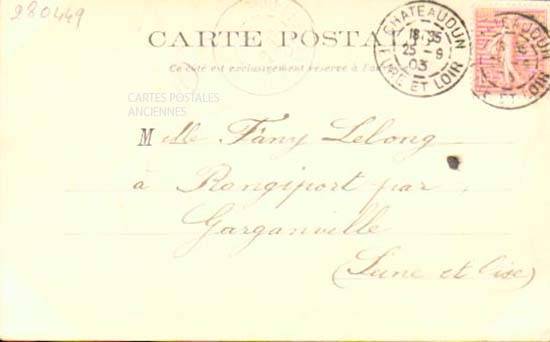 280449
CARTE POSTALE
Ce côté est exclusivement réservé à l'adresse
CHATEAUDUN
18 35
25 - 9
03
EURE ET LOIR
CARTES POSTALES
ANCIENNES
Melle Fany Lelong
à Rangiport par
Garganville
(Seine et Oise)